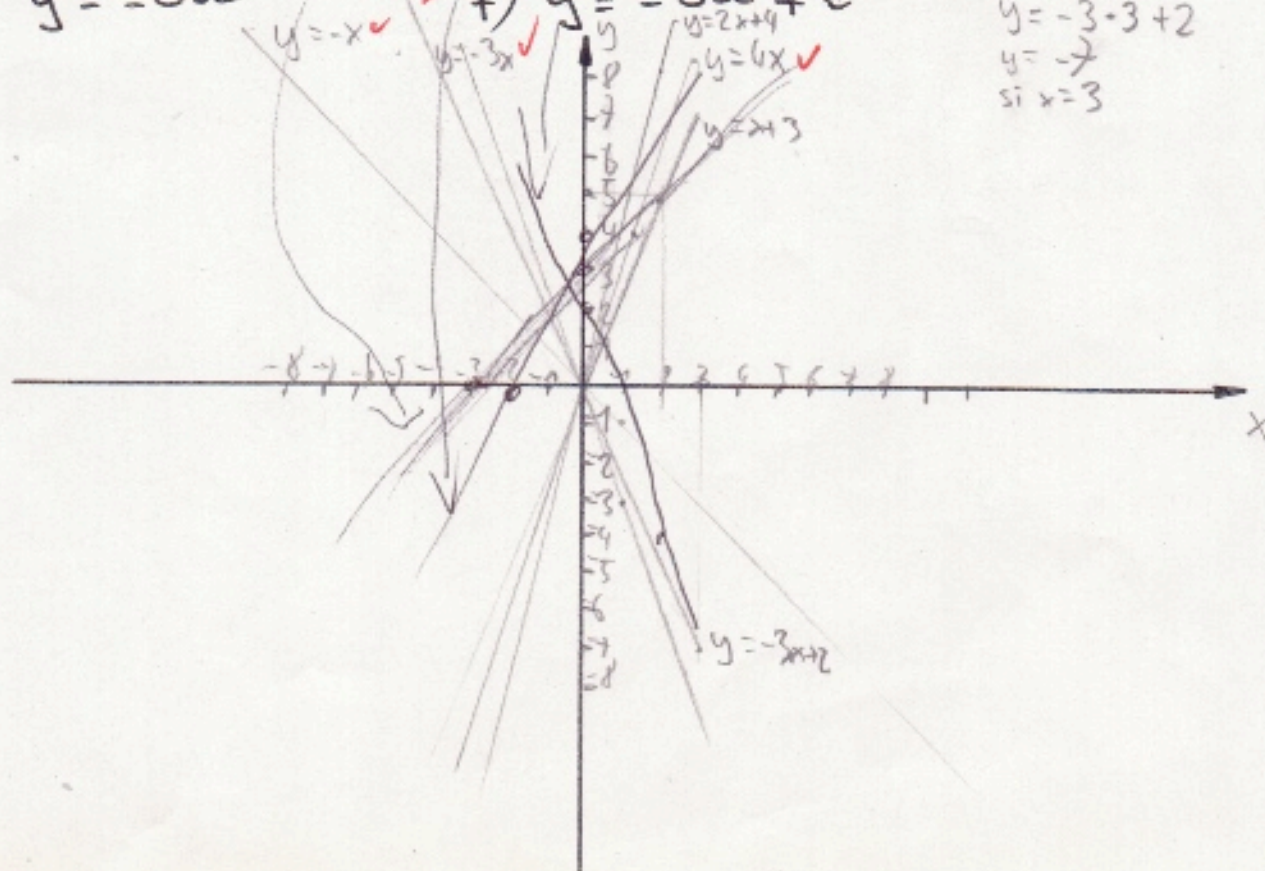 y = -3x
f) y = -3x + 2
y = -3·3 + 2
y = -7
si x = 3
y = -x ✓
y = -3x ✓
y
y = 2x+4
y = 4x ✓
y = x+3
8
7
6
5
4
3
2
-8 -7 -6 -5 -3 -2 -1 1 2 3 4 5 6 7 8
x
-1
-2
-3
-4
-5
-6
-7
-8
y = -3x+2